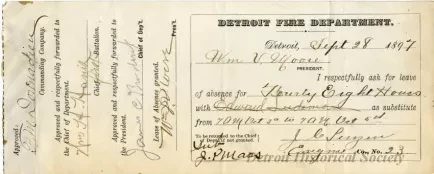 Approved:
Commanding Company.
Approved and respectfully forwarded to
the Chief of Department.
Wm H.
Chief Battalion.
Approved and respectfully forwarded to
the President.
James C.
Chief of Dep't.
Leave of Absence granted.
Wm V. Moore
Pres't.
DETROIT FIRE DEPARTMENT.
Detroit, Sept 28 1897
Wm V. Moore
PRESIDENT.
I respectfully ask for leave
of absence for Fourty Eight Hours
with Edward as substitute
from 7 AM Oct to 7 AM Oct
To be returned to the Chief
of Dep't if not granted.
J C
Lieut
J. P. Maas
Engine Co. No. 23
Detroit Historical Society